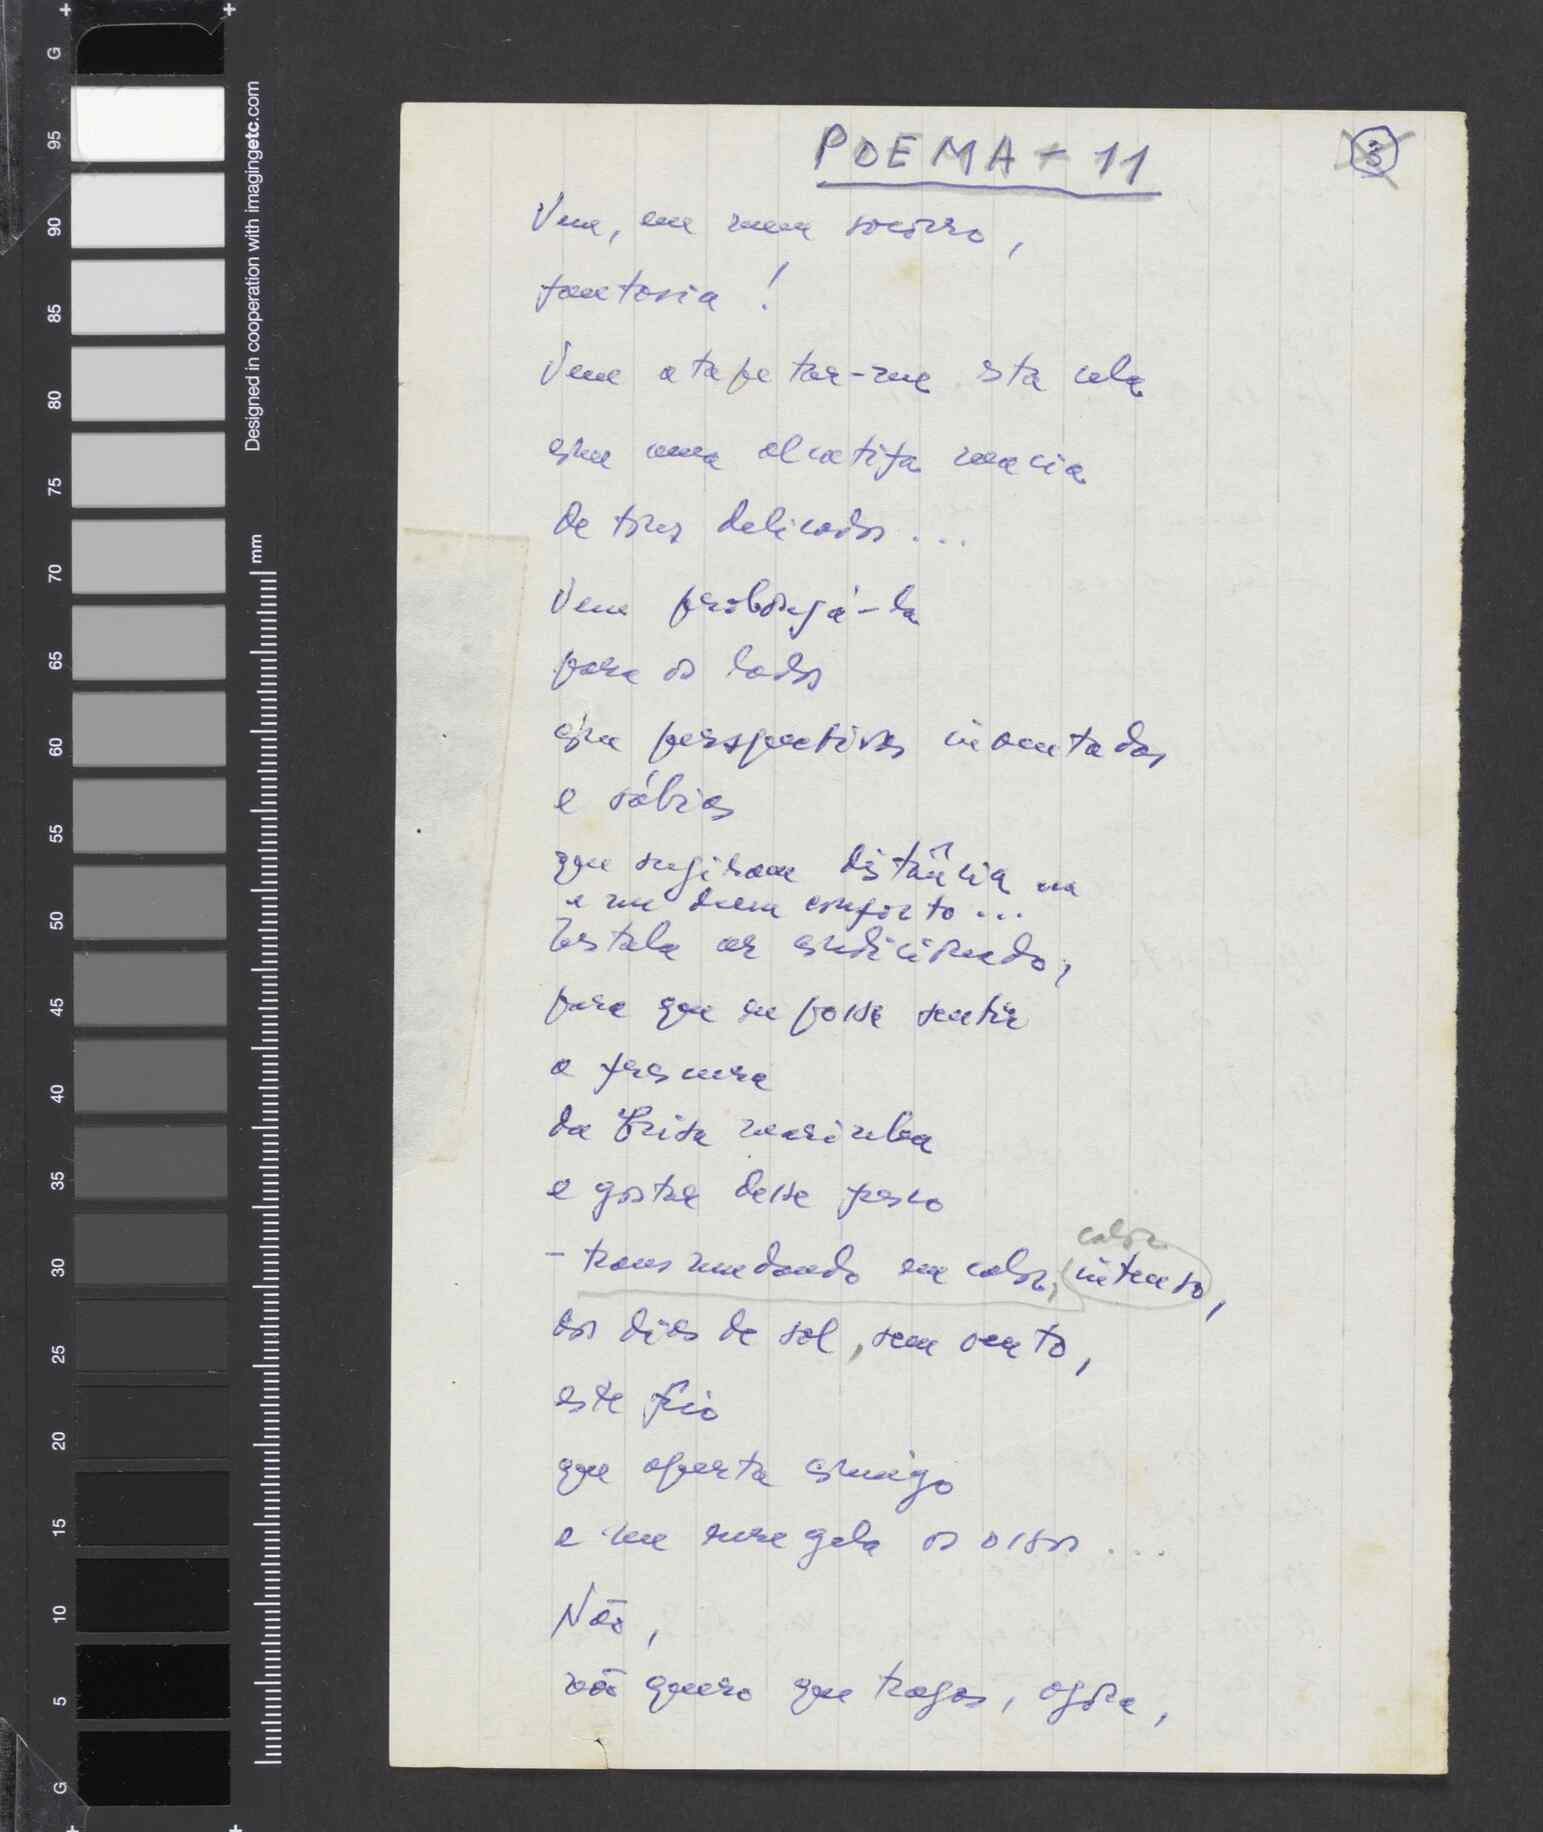 POEMA - 11
3
Vem, em meu socorro,
fantasia!
Vem atapetar-me esta cela
com uma alcatifa macia
de tons delicados...
Vem prolongá-la
para os lados
com perspectivas inventadas
e sábias
que sugiram distância
e me deem conforto...
Instala ar condicionado,
para que eu possa sentir
a frescura
da brisa marinha
e gostar desse fresco
calor
- transmudando em calor, intenso,
dos dias de sol, sem vento,
este frio
que aperta comigo
e me enregela os ossos...
Não,
não quero que tragas, agora,
G
95
90
85
80
75
70
65
60
55
50
45
40
35
30
25
20
15
10
5
G
Designed in cooperation with imagingetc.com
mm